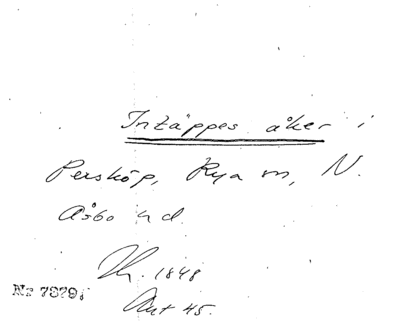 Intäppes åker i
Perskóp, Rya m, N.
Åsbo hd.
Th. 1848
Akt 45.
No 7879.